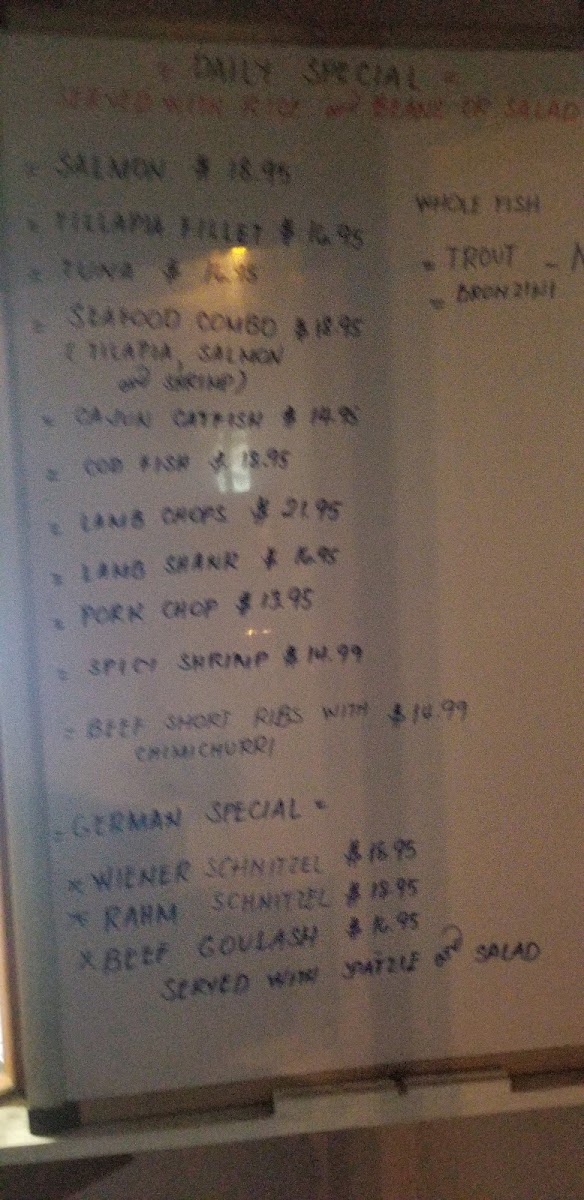 = DAILY SPECIAL =
SERVED WITH RICE and BEANS OR SALAD
= SALMON $ 18.95
= TILLAPIA FILLET $ 16.95
= TUNA $ 16.95
= SEAFOOD COMBO $ 18.95
( TILAPIA, SALMON
and SHRIMP)
= CAJUN CATFISH $ 14.95
= COD FISH $ 18.95
= LAMB CHOPS $ 21.95
= LAMB SHANK $ 16.95
= PORK CHOP $ 13.95
= SPICY SHRIMP $ 14.99
= BEEF SHORT RIBS WITH $ 14.99
CHIMICHURRI
= GERMAN SPECIAL =
x WIENER SCHNITZEL $ 18.95
x RAHM SCHNITZEL $ 18.95
x BEEF GOULASH $ 16.95
SERVED WITH SPATZLE and SALAD
WHOLE FISH
= TROUT -
= BRONZINI